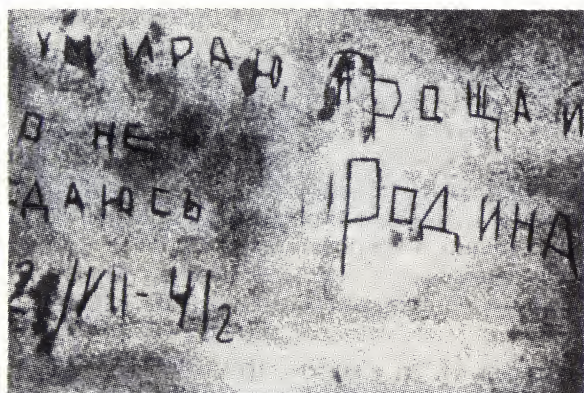 УМИРАЮ,
О НЕ
ДАЮСЬ
/VII-41г
ПРОЩАЙ
РОДИНА